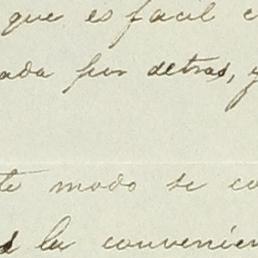 que es facil c
ada por detras, y
te modo se co
la convenien